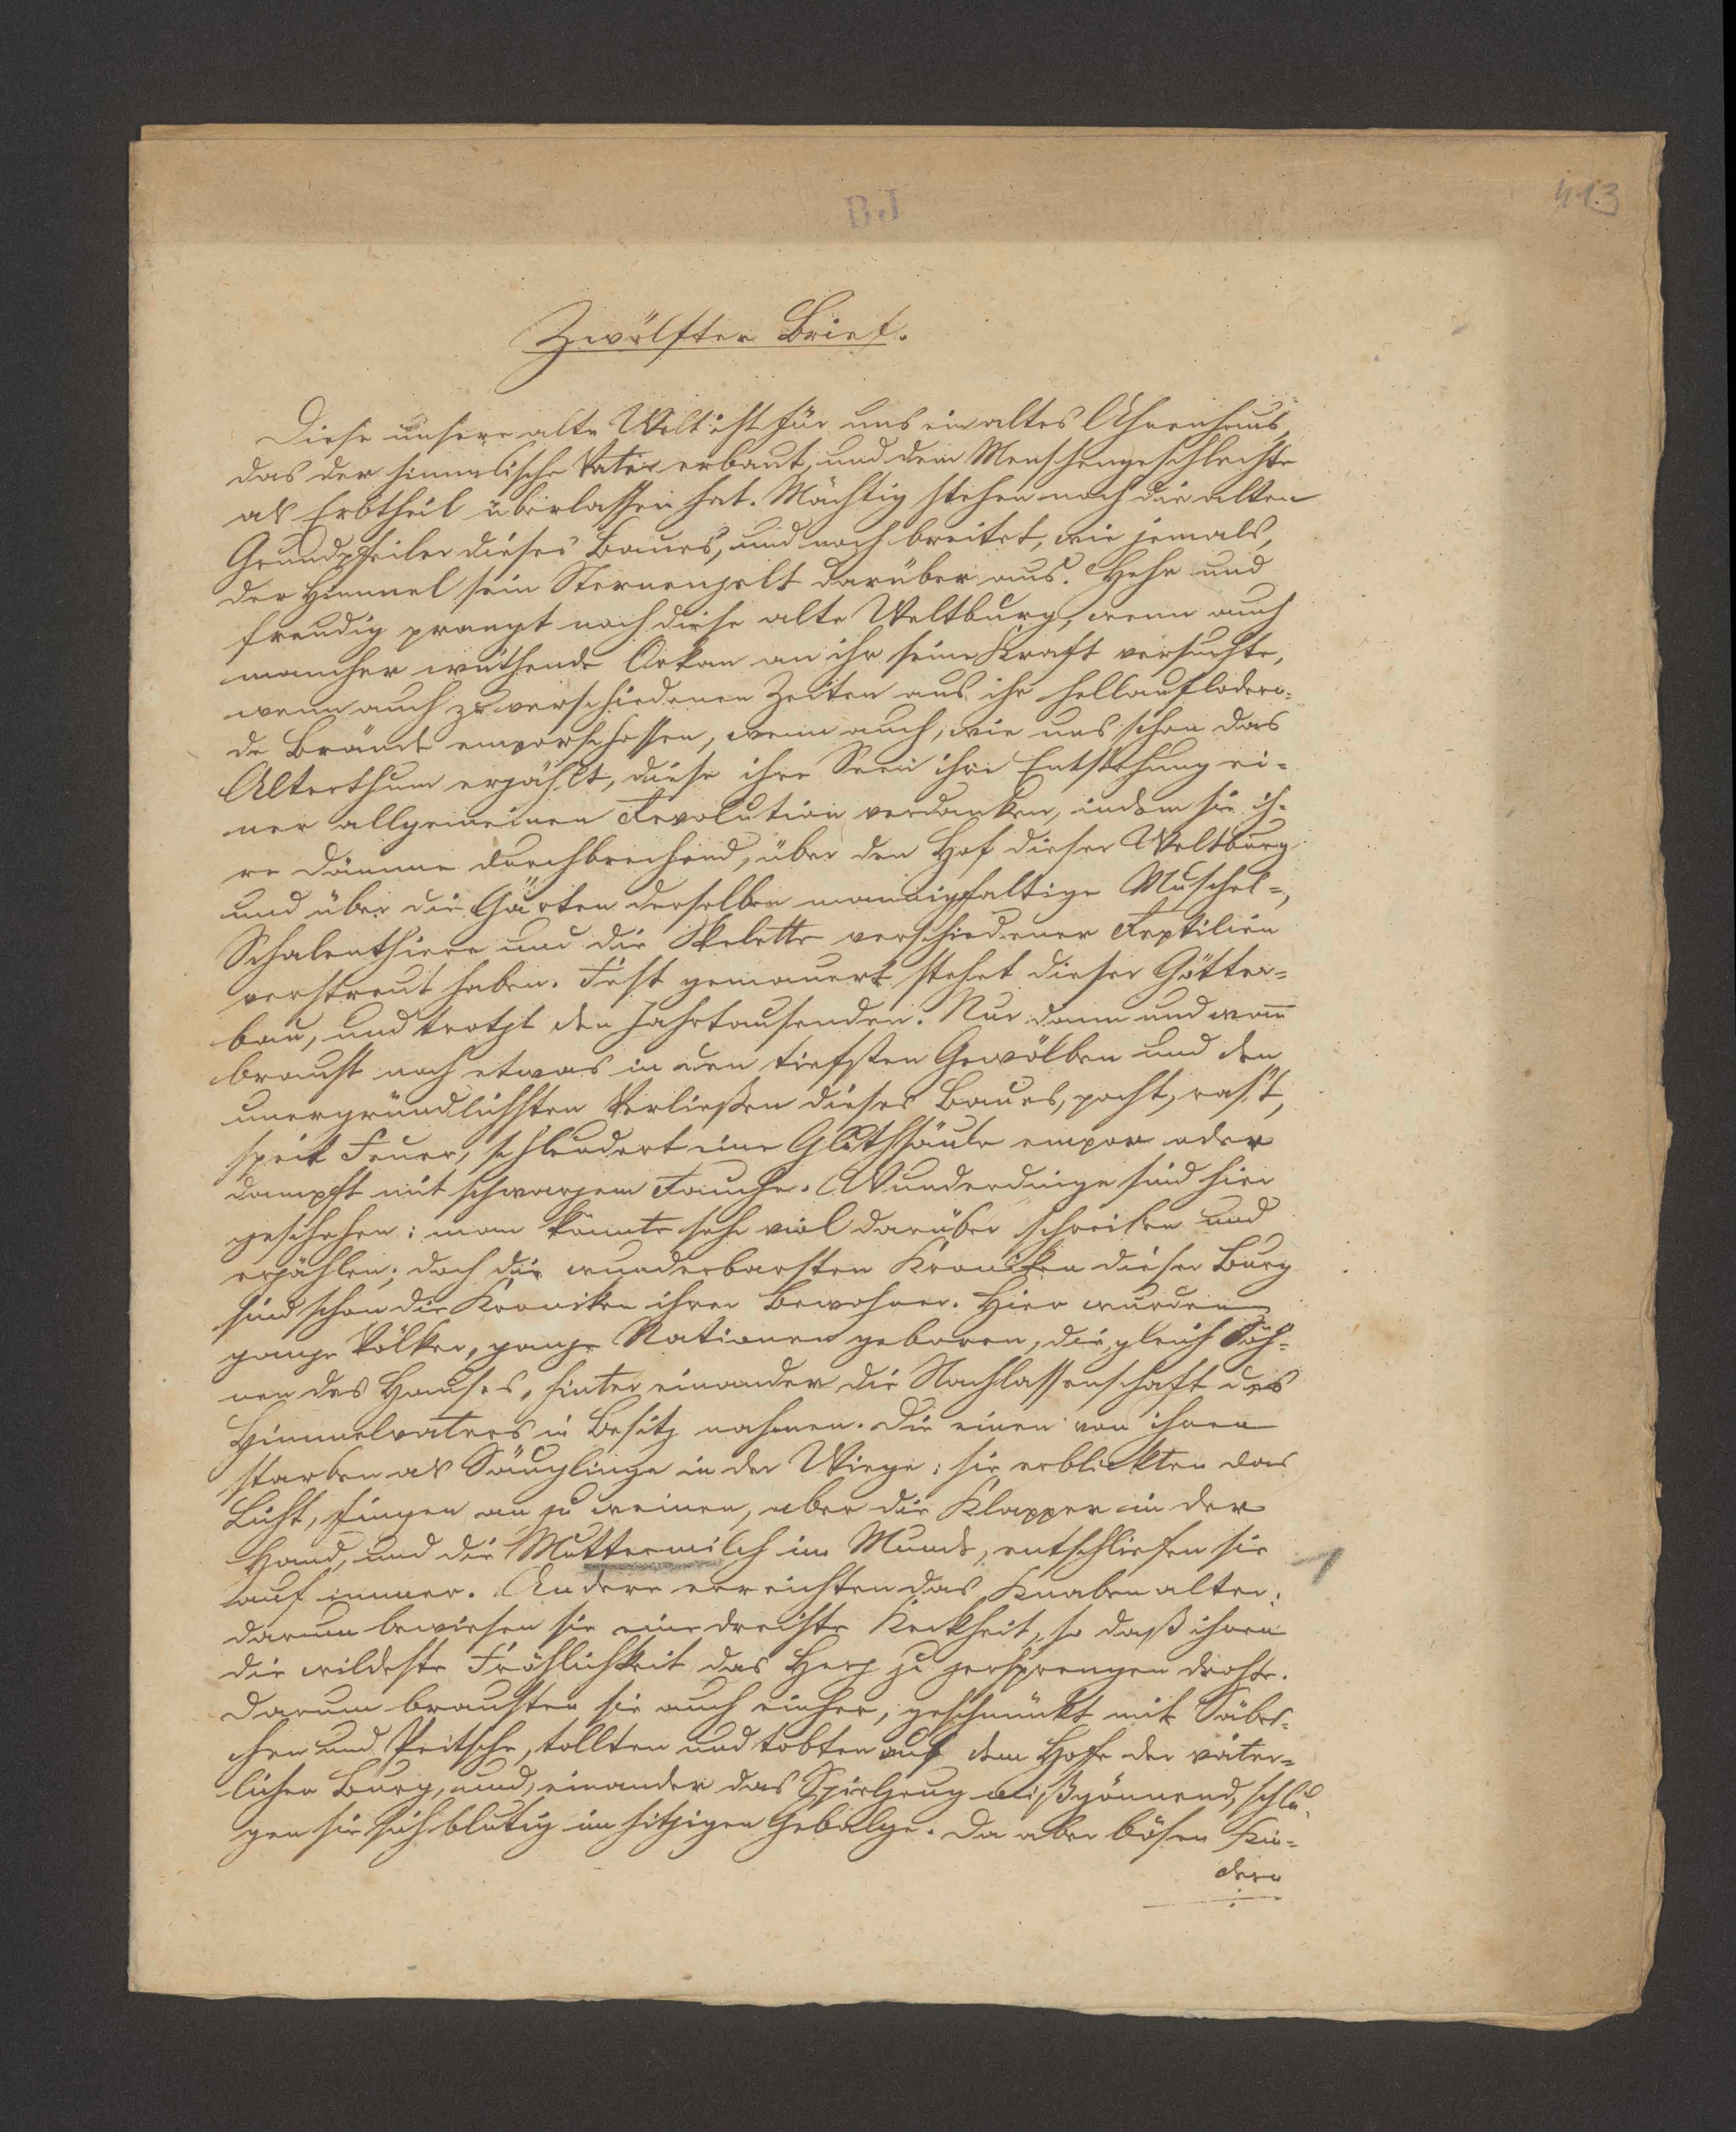 BJ
413
Zwölfter Brief.
Diese unsere alte Welt ist für uns ein altes Ahnenhaus,
das der himmlische Vater erbaut, und dem Menschengeschlechte
als Erbtheil überlassen hat. Mächtig stehen noch die alten
Grundpfeiler dieses Baues, und noch breitet, wie jemals,
der Himmel sein Sternenzelt darüber aus. Hehr und
freudig prangt noch diese alte Weltburg, wenn auch
mancher wüthende Orkan an ihr seine Kraft versuchte,
wenn auch zu verschiedenen Zeiten aus ihr hellauflodern-
de Brände emporschossen, wenn auch, wie uns schon das
Alterthum erzählt, diese ihre Seen ihre Entstehung ei-
ner allgemeinen Revolution verdanken, indem sie ih-
re Dämme durchbrechend, über den Hof dieser Weltburg
und über die Gärten derselben mannigfaltige Muschel-,
Schalenthiere und die Skelette verschiedener Reptilien
verstreut haben. Fest gemauert stehet dieser Götter-
bau, und trotzt den Jahrtausenden. Nur dann und wan̅
braust noch etwas in den tiefsten Gewölben und den
unergründlichsten Verließen dieses Baues, pocht, ras't,
speit Feuer, schleudert eine Gluthsäule empor oder
dampft mit schwarzem Rauche. Wunderdinge sind hier
geschehen: man könnte sehr viel darüber schreiben und
erzählen; doch die wunderbarsten Kroniken dieser Burg
sind schon die Kroniken ihrer Bewohner. Hier wurden
ganze Völker, ganze Nationen geboren, die, gleich Söh-
nen des Hauses, hinter einander die Nachlassenschaft des
Himmelvaters in Besitz nahmen. Die einen von ihnen
starben als Säuglinge in der Wiege: sie erblickten das
Licht, fingen an zu weinen, aber die Klapper in der
Hand, und die Muttermilch im Munde, entschliefen sie
auf immer. Andere erreichten das Knabenalter:
darum bewiesen sie eine dreiste Keckheit, so daß ihnen
die wildeste Fröhlichkeit das Herz zu zersprengen drohte.
Darum brausten sie auch einher, geschmückt mit Säbel-
chen und Peitsche, tollten und tobten auf dem Hofe der väter-
lichen Burg, und, einander das Spielzeug mißgönnend, schlu-
gen sie sich blutig im hitzigen Gebalge. Da aber bösen Kin-
dern